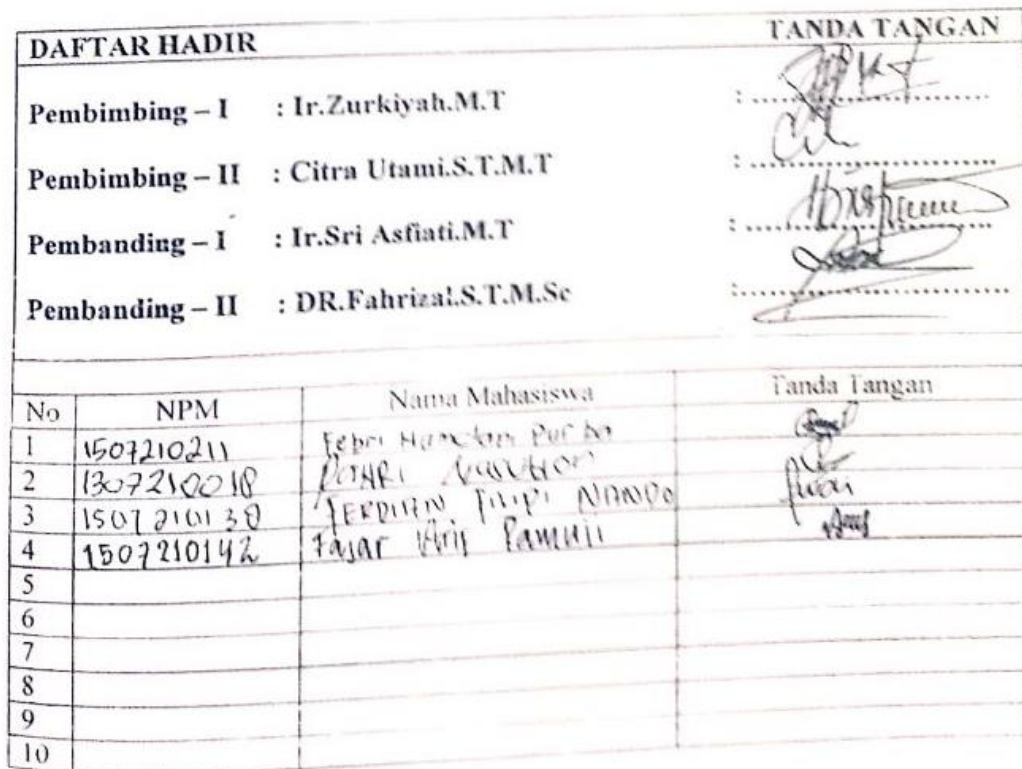 DAFTAR HADIR TANDA TANGAN
Pembimbing – I : Ir.Zurkiyah.M.T : ..............................
Pembimbing – II : Citra Utami.S.T.M.T : ..............................
Pembanding – I : Ir.Sri Asfiati.M.T : ..............................
Pembanding – II : DR.Fahrizal.S.T.M.Sc : ..............................
No NPM Nama Mahasiswa Tanda Tangan
1 1507210211 Febri Hamdani Purba
2 1307210018
3 1507210130 FERDIAN FILIPI NANDO
4 1507210142 Fajar Aris Pamuji
5
6
7
8
9
10